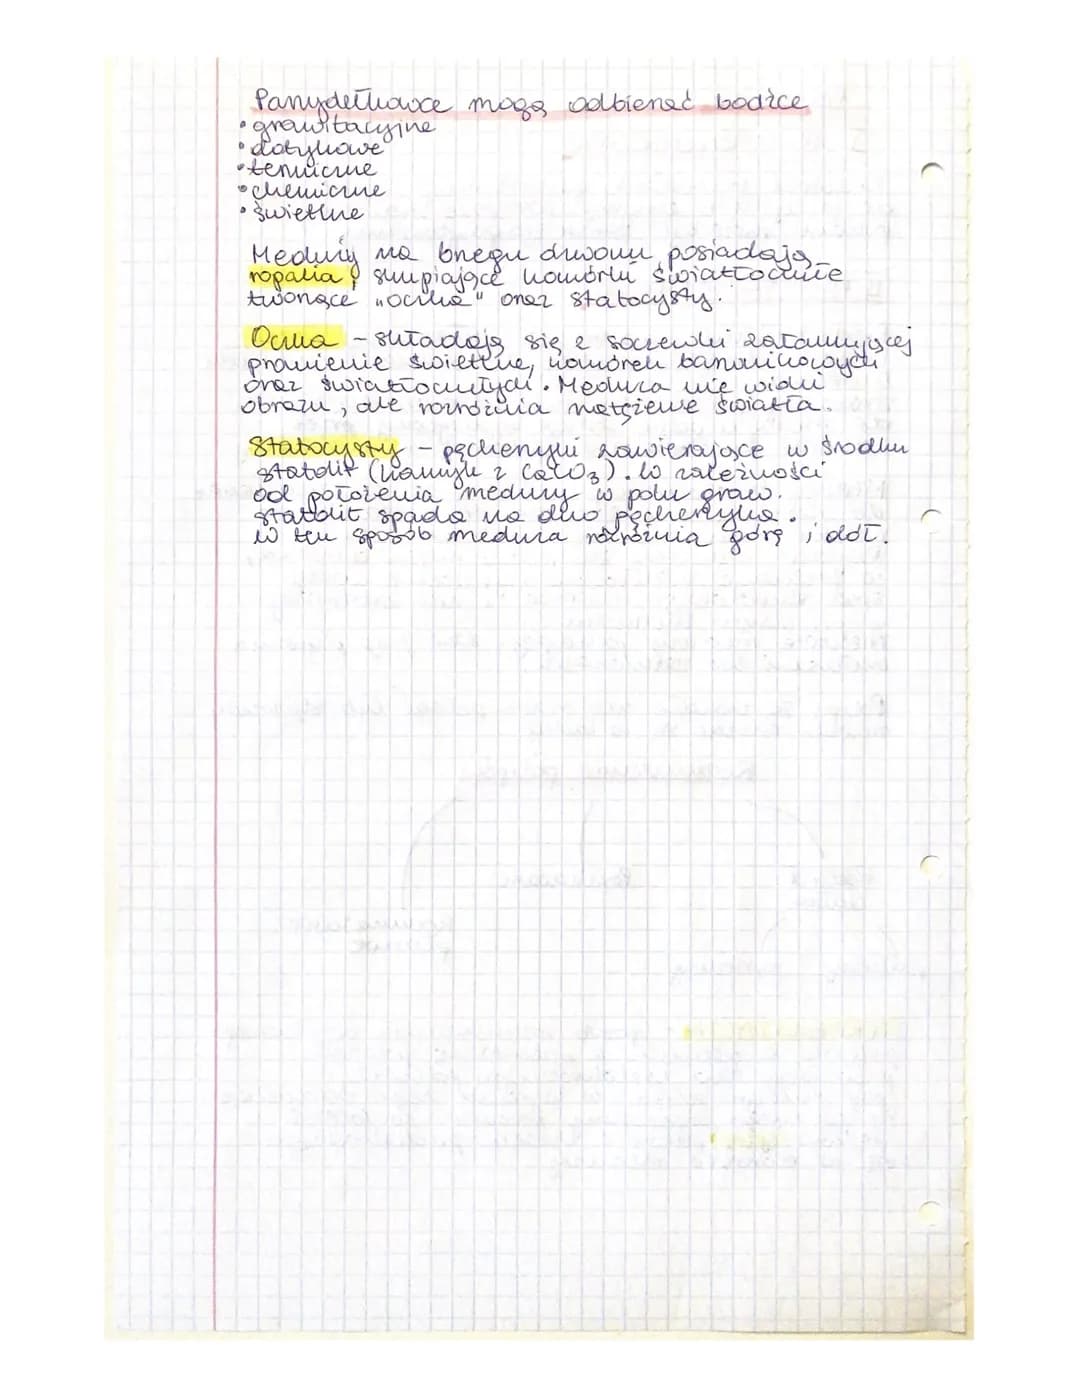 Parzydełkowce mogą odbierać bodźce
• grawitacyjne
• dotykowe
• termiczne
• chemiczne
• świetlne
Meduzy na brzegu dzwonu posiadają
ropalia, skupiające komórki światłoczułe
tworzące "oczka" oraz statocysty.
Oczka - składają się z soczewki załamującej
promienie świetlne, komórek barwnikowych
oraz światłoczułych. Meduza nie widzi
obrazu, ale rozróżnia natężenie światła.
Statocysty - pęcherzyki zawierające w środku
statolit (kamyk z CaCO3). W zależności
od położenia meduzy w polu graw.
statolit spada na dno pęcherzyka.
W ten sposób meduza rozróżnia górę i dół.